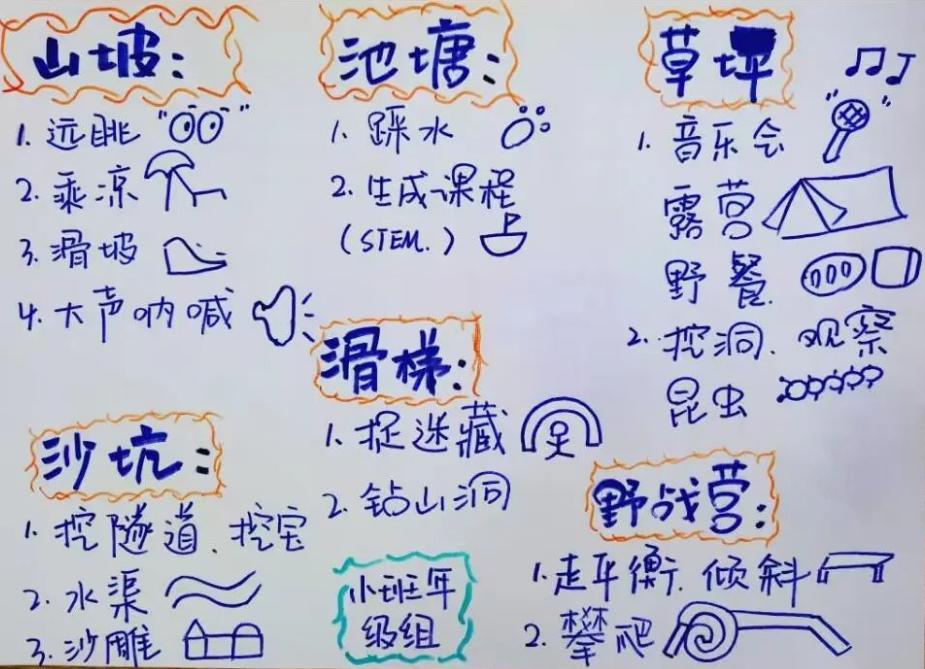 山坡：
1. 远眺
2. 乘凉
3. 滑坡
4. 大声呐喊
池塘：
1. 踩水
2. 生成课程
（STEM.）
草坪
1. 音乐会
露营
野餐
2. 挖洞、观察
昆虫
滑梯：
1. 捉迷藏
2. 钻山洞
沙坑：
1. 挖隧道、挖宝
2. 水渠
3. 沙雕
野战营：
1. 走平衡、倾斜
2. 攀爬
小班年
级组